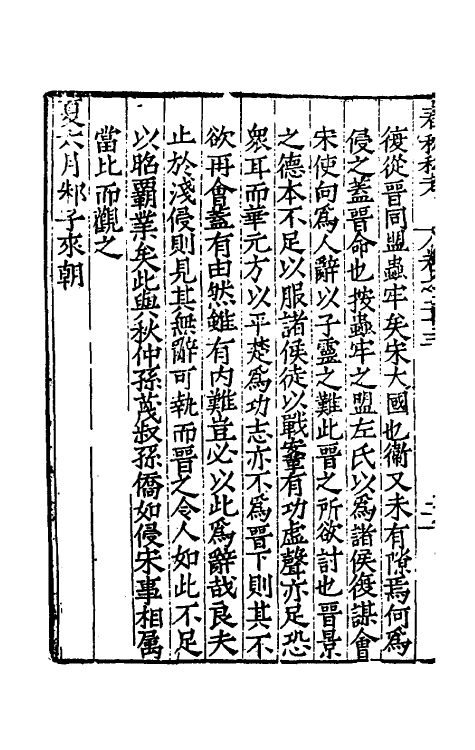 復從晉同盟蟲牢矣宋大國也衛又未有隙焉何爲
侵之蓋晉命也按蟲牢之盟左氏以爲諸侯復謀會
宋使向爲人辭以子靈之難此晉之所欲討也晉景
之德本不足以服諸侯徒以戰鞌有功虛聲亦足恐
衆耳而華元方以平楚爲功志亦不爲晉下則其不
欲再會蓋有由然雖有内難豈必以此爲辭哉良夫
止於淺侵則見其無辭可執而晉之令人如此不足
以昭霸業矣此與秋仲孫蔑叔孫僑如侵宋事相属
當比而觀之
夏六月邾子來朝